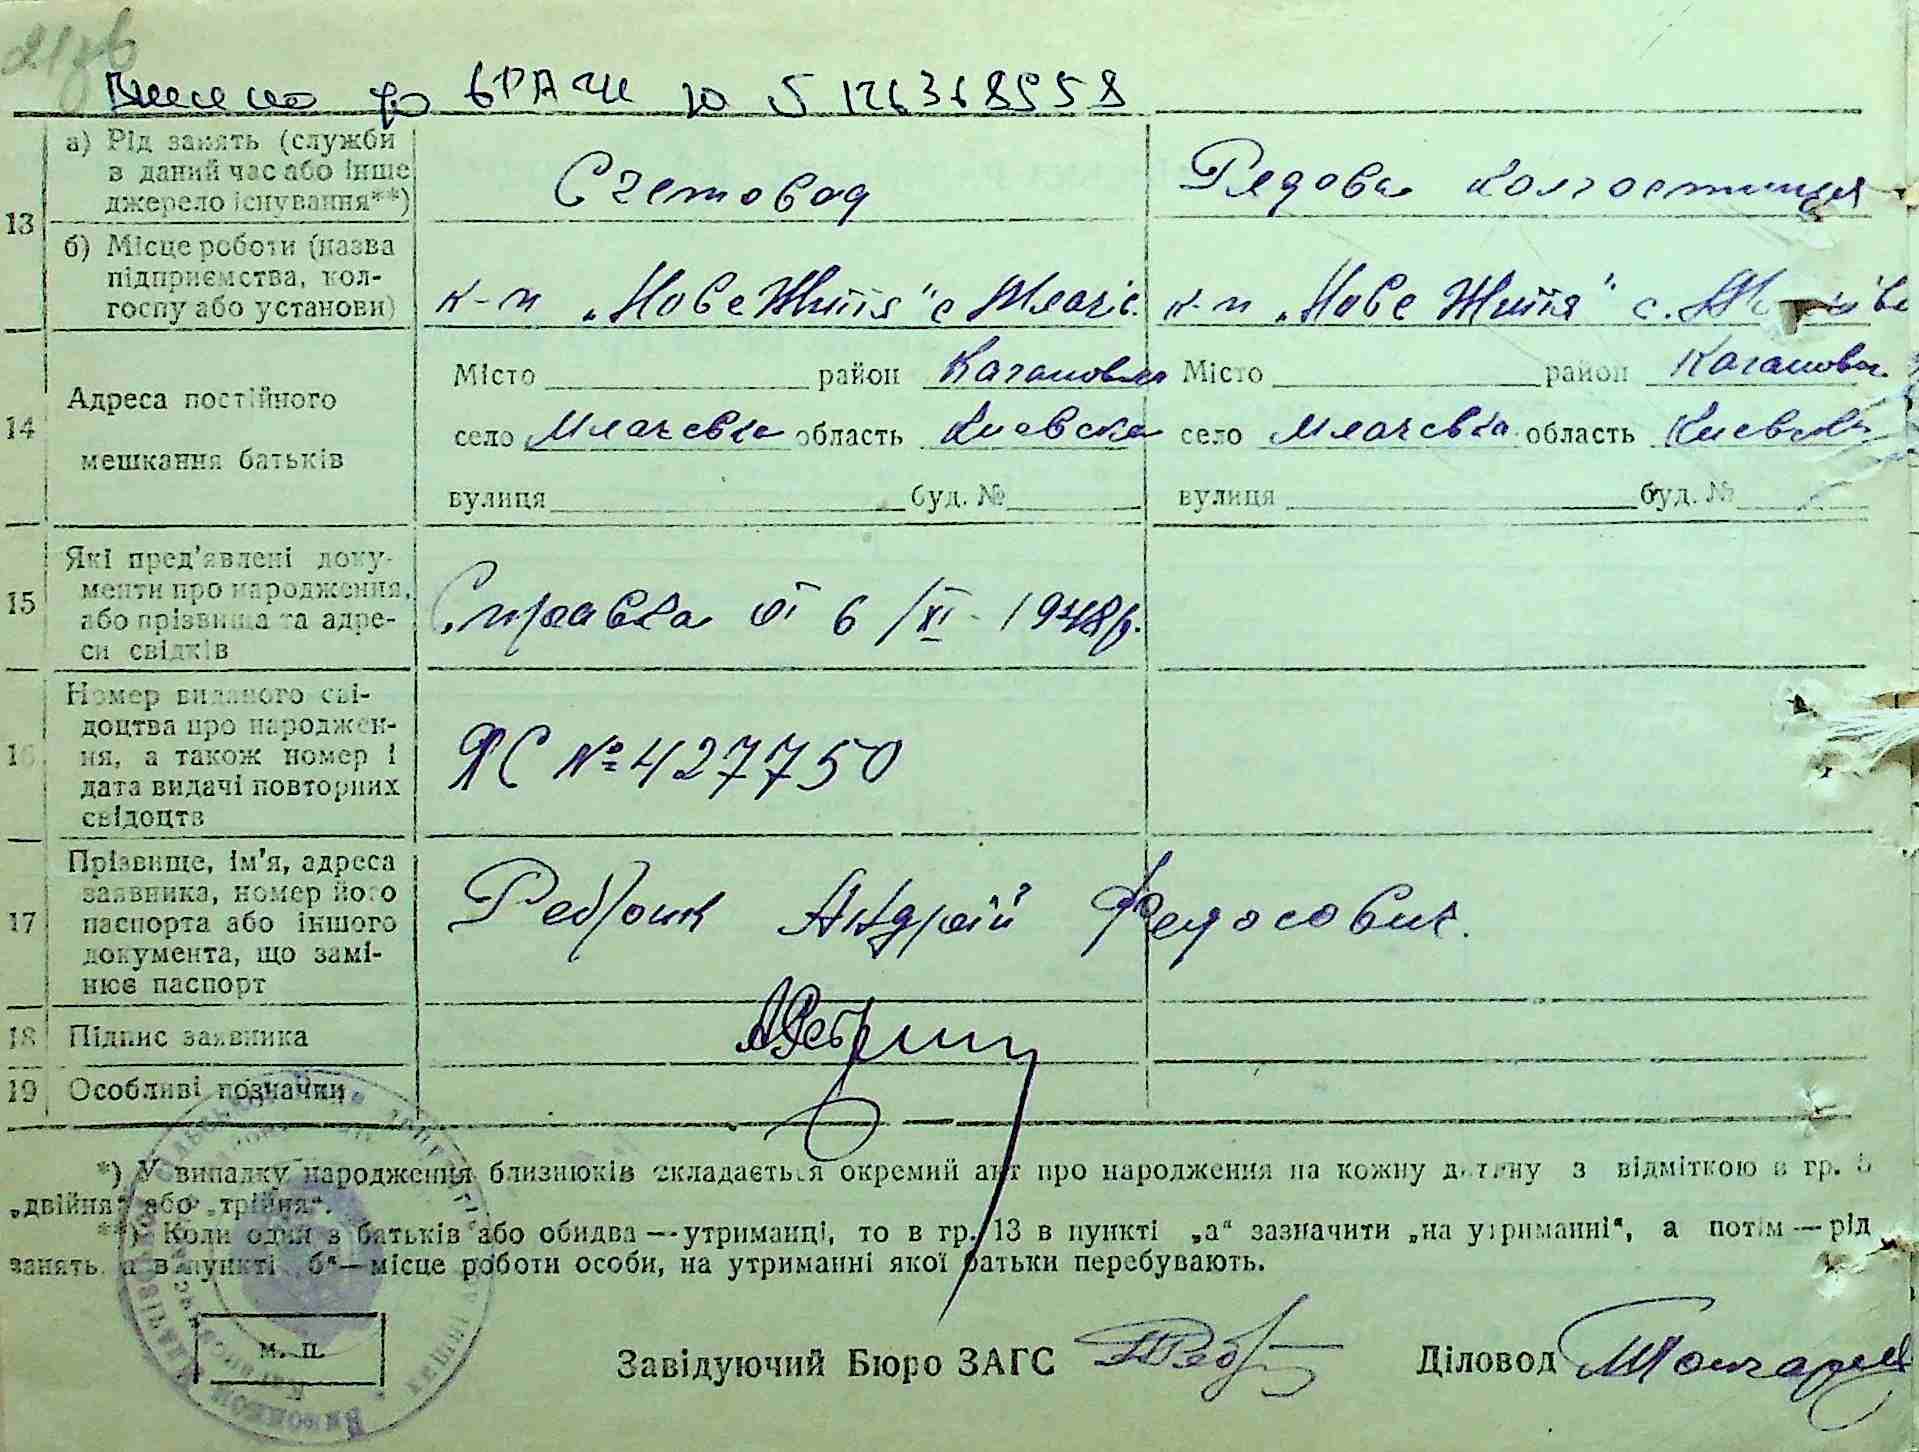 217зв
Внесено до
13 а) Рід занять (служби в даний час або інше джерело існування**) Счетовод Рядова колгоспниця
б) Місце роботи (назва підприємства, колгоспу або установи) к-п „Нове Життя" с к-п „Нове Життя" с.
14 Адреса постійного мешкання батьків
Місто район Каганови Місто район Каганови
село Млачевка область Киевска село Млачевка область Киевска
вулиця буд. № вулиця буд. №
15 Які пред'явлені доку-
менти про народження,
або прізвища та адре-
си свідків
Справка від 6/XI-1948р.
16 Номер виданого сві-
доцтва про народжен-
ня, а також номер і
дата видачі повторних
свідоцтв
ЯС №427750
17 Прізвище, ім'я, адреса
заявника, номер його
паспорта або іншого
документа, що замі-
нює паспорт
Ребрик Андрій Федосович.
18 Підпис заявника
19 Особливі позначки
*) У випадку народження близнюків складається окремий акт про народження на кожну дитину з відміткою в гр. 5
„двійня" або „трійня".
**) Коли один з батьків або обидва — утриманці, то в гр. 13 в пункті „а" зазначити „на утриманні", а потім — рід
занять, а в пункті „б" — місце роботи особи, на утриманні якої батьки перебувають.
м. п.
Завідуючий Бюро ЗАГС Діловод